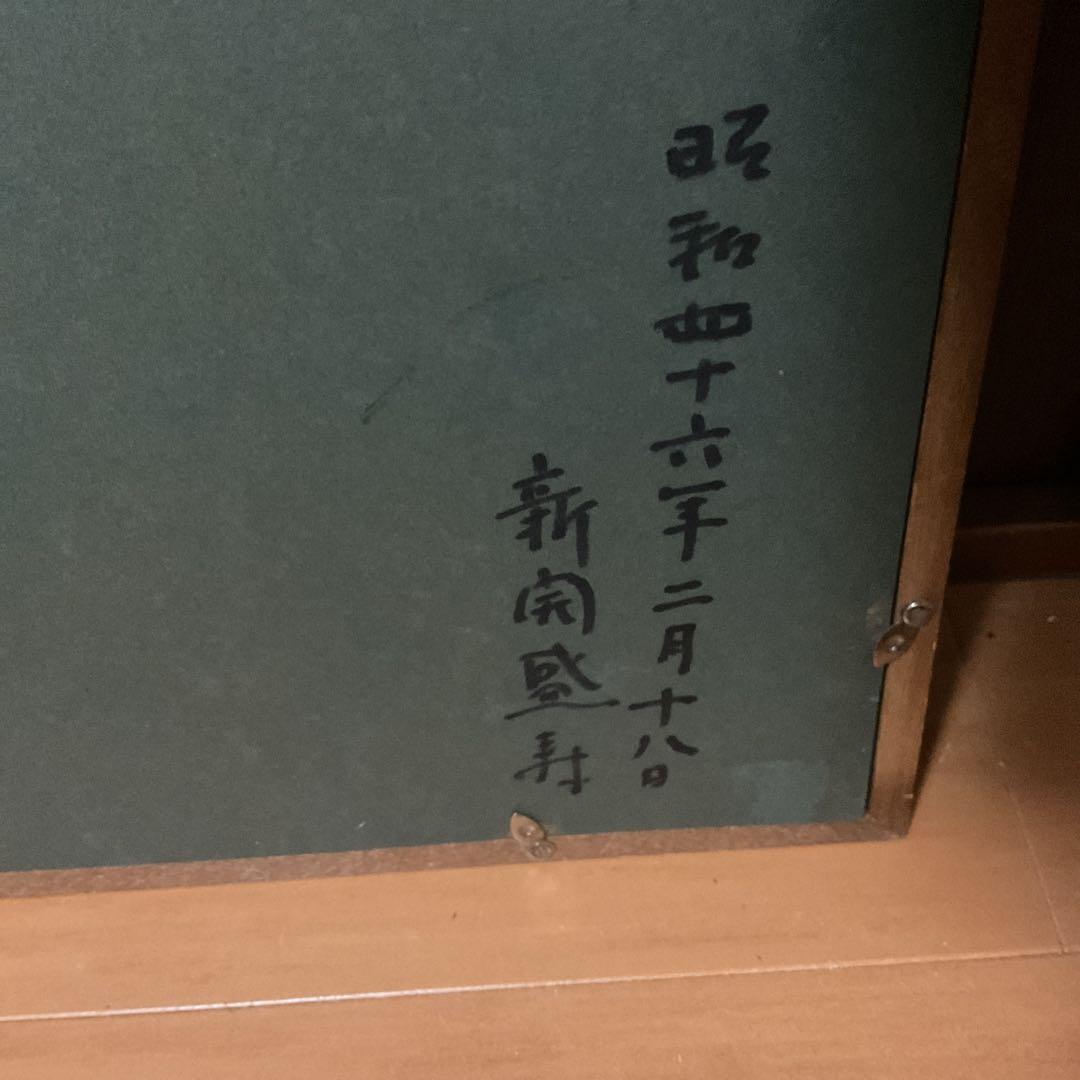 昭和四十六年二月十八日
新開盛寿